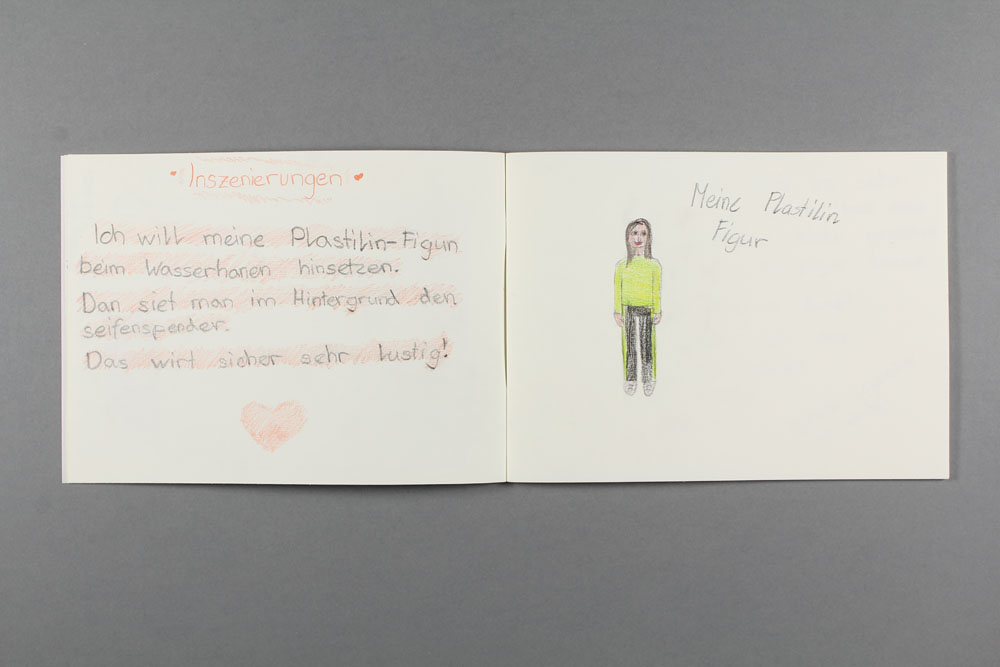 Inszenierungen
Ich will meine Plastilin-Figur
beim Wasserhanen hinsetzen.
Dan siet man im Hintergrund den
seifenspender.
Das wirt sicher sehr lustig!
Meine Plastilin
Figur